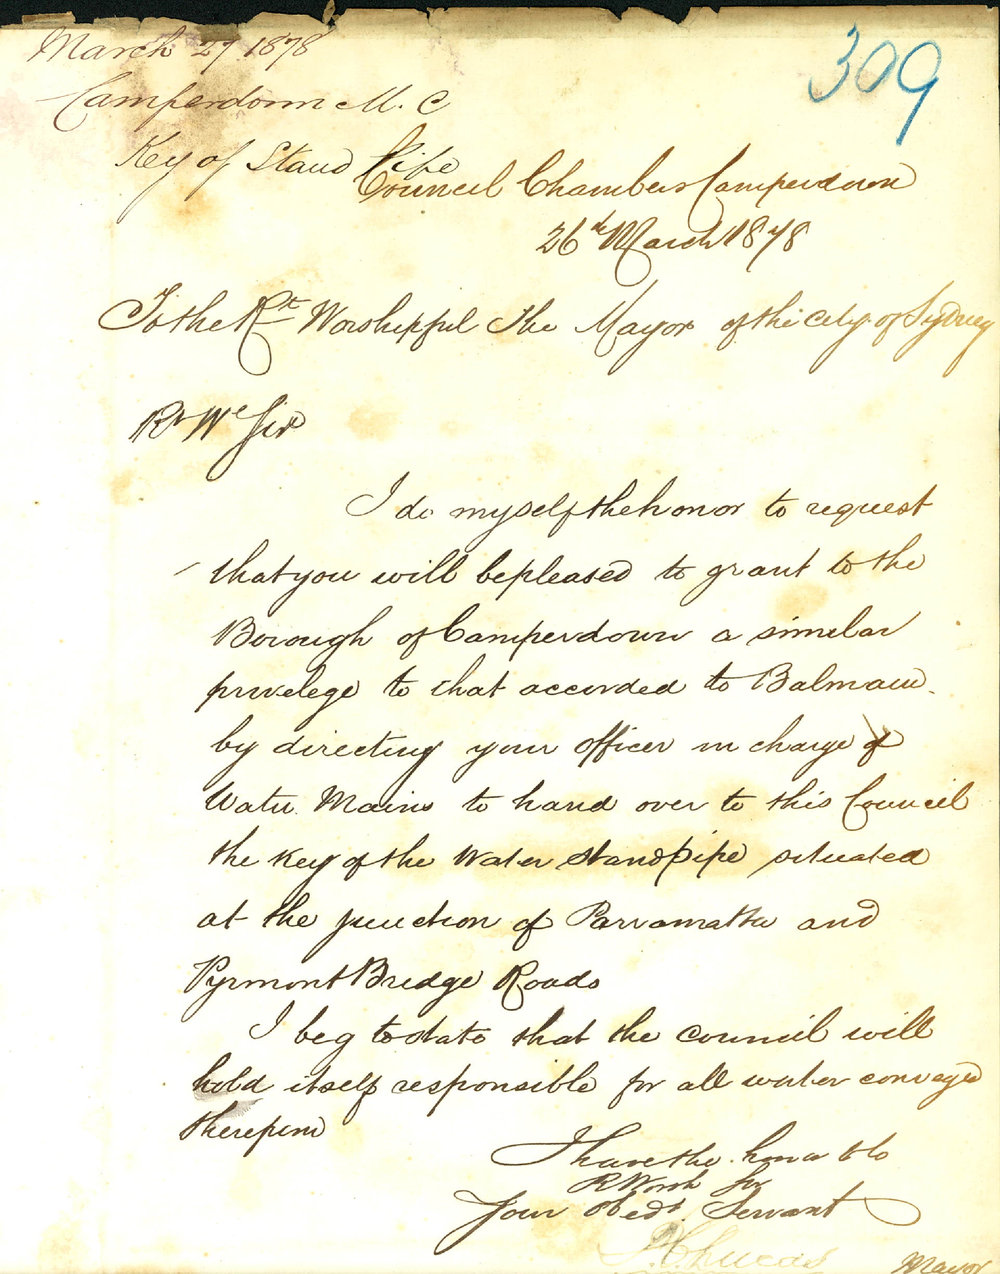 March 27 1878
309
Camperdown M. C
Key of Stand Pipe
Council Chambers Camperdown
26th March 1878
To the Rt Worshipful The Mayor of the City of Sydney
Rt We Sir
I do myself the honor to request
that you will be pleased to grant to the
Borough of Camperdown a similar
privelege to that accorded to Balmain
by directing your officer in charge of
Water Mains to hand over to this Council
the Key of the Water standpipe situated
at the junction of Parramatta and
Pyrmont Bridge Roads
I beg to state that the council will
hold itself responsible for all water conveyed
therefrom
I have the honor to be
R Worsh Sir
Your Obedt Servant
Lucas
Mayor